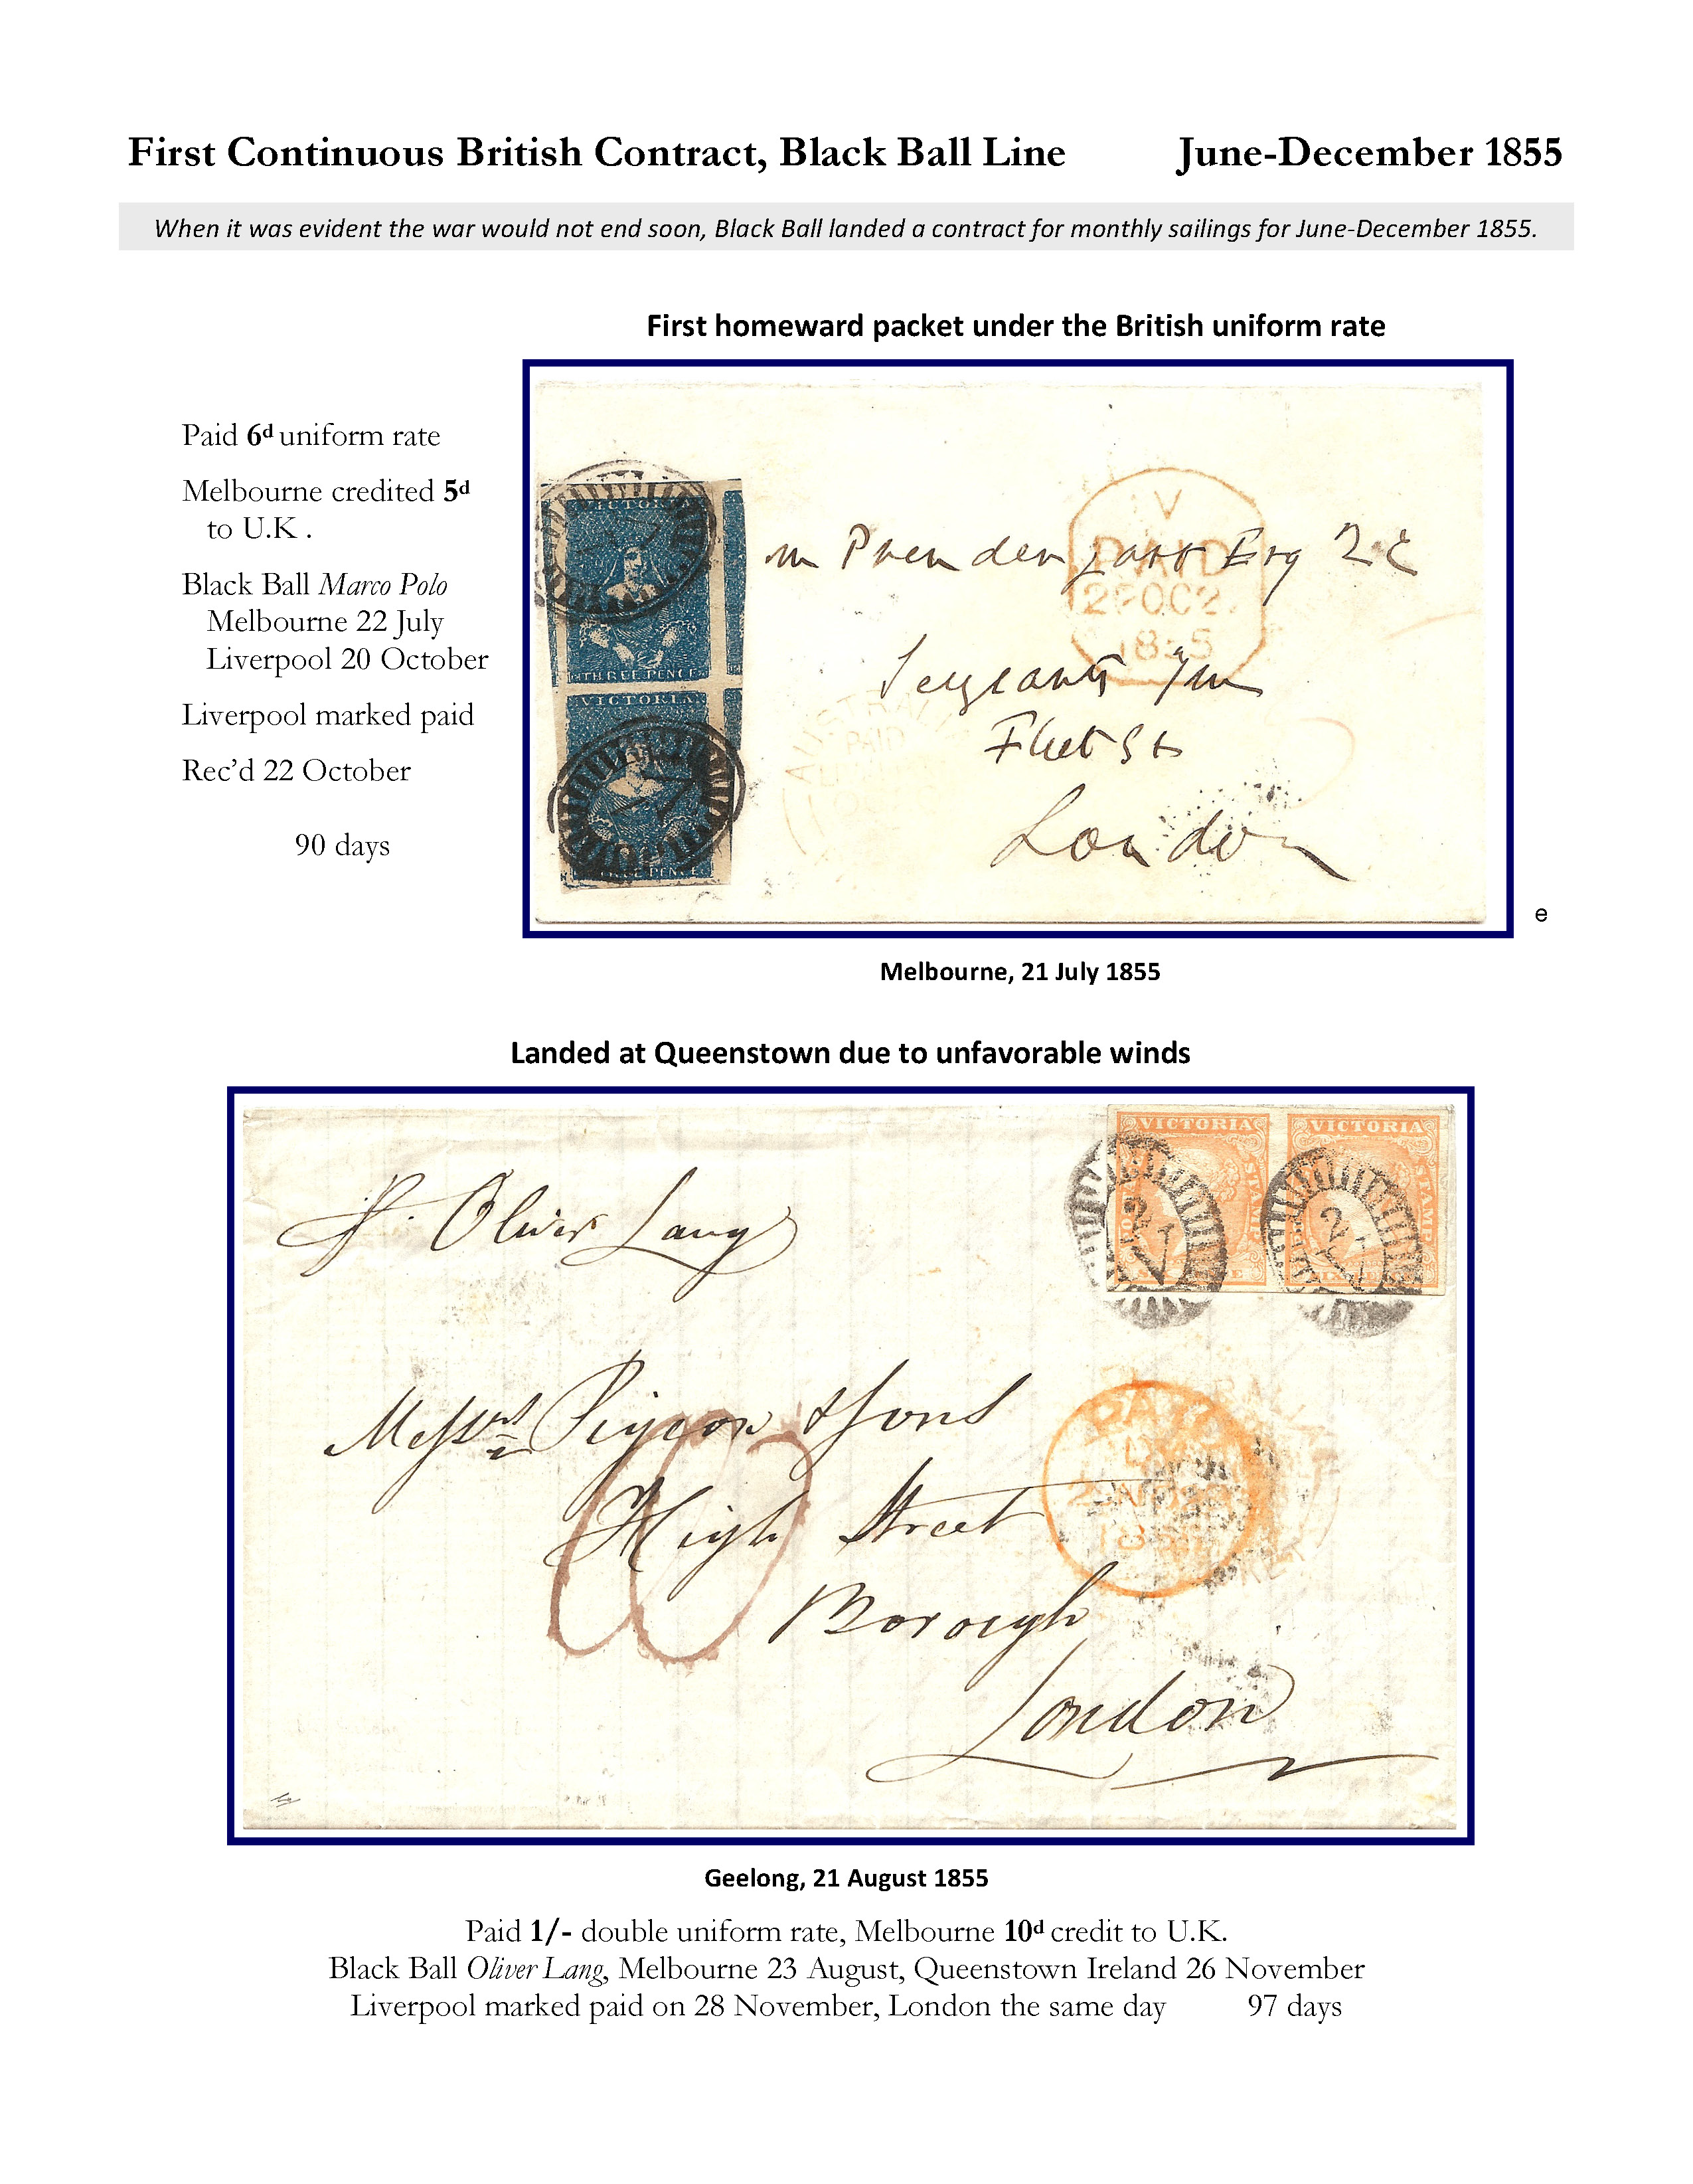 First Continuous British Contract, Black Ball Line June-December 1855
When it was evident the war would not end soon, Black Ball landed a contract for monthly sailings for June-December 1855.
First homeward packet under the British uniform rate
Paid 6d uniform rate
Melbourne credited 5d
to U.K .
Black Ball Marco Polo
Melbourne 22 July
Liverpool 20 October
Liverpool marked paid
Rec'd 22 October
90 days
VICTORIA
THREE PENCE
VICTORIA
V
PAID
1855
Esq
Fleet St
London
PAID
e
Melbourne, 21 July 1855
Landed at Queenstown due to unfavorable winds
VICTORIA VICTORIA
STAMP STAMP
p. Oliver Lang
Messrs Pigeon & Sons
High Street
Borough
London
PAID
10
Geelong, 21 August 1855
Paid 1/- double uniform rate, Melbourne 10d credit to U.K.
Black Ball Oliver Lang, Melbourne 23 August, Queenstown Ireland 26 November
Liverpool marked paid on 28 November, London the same day 97 days